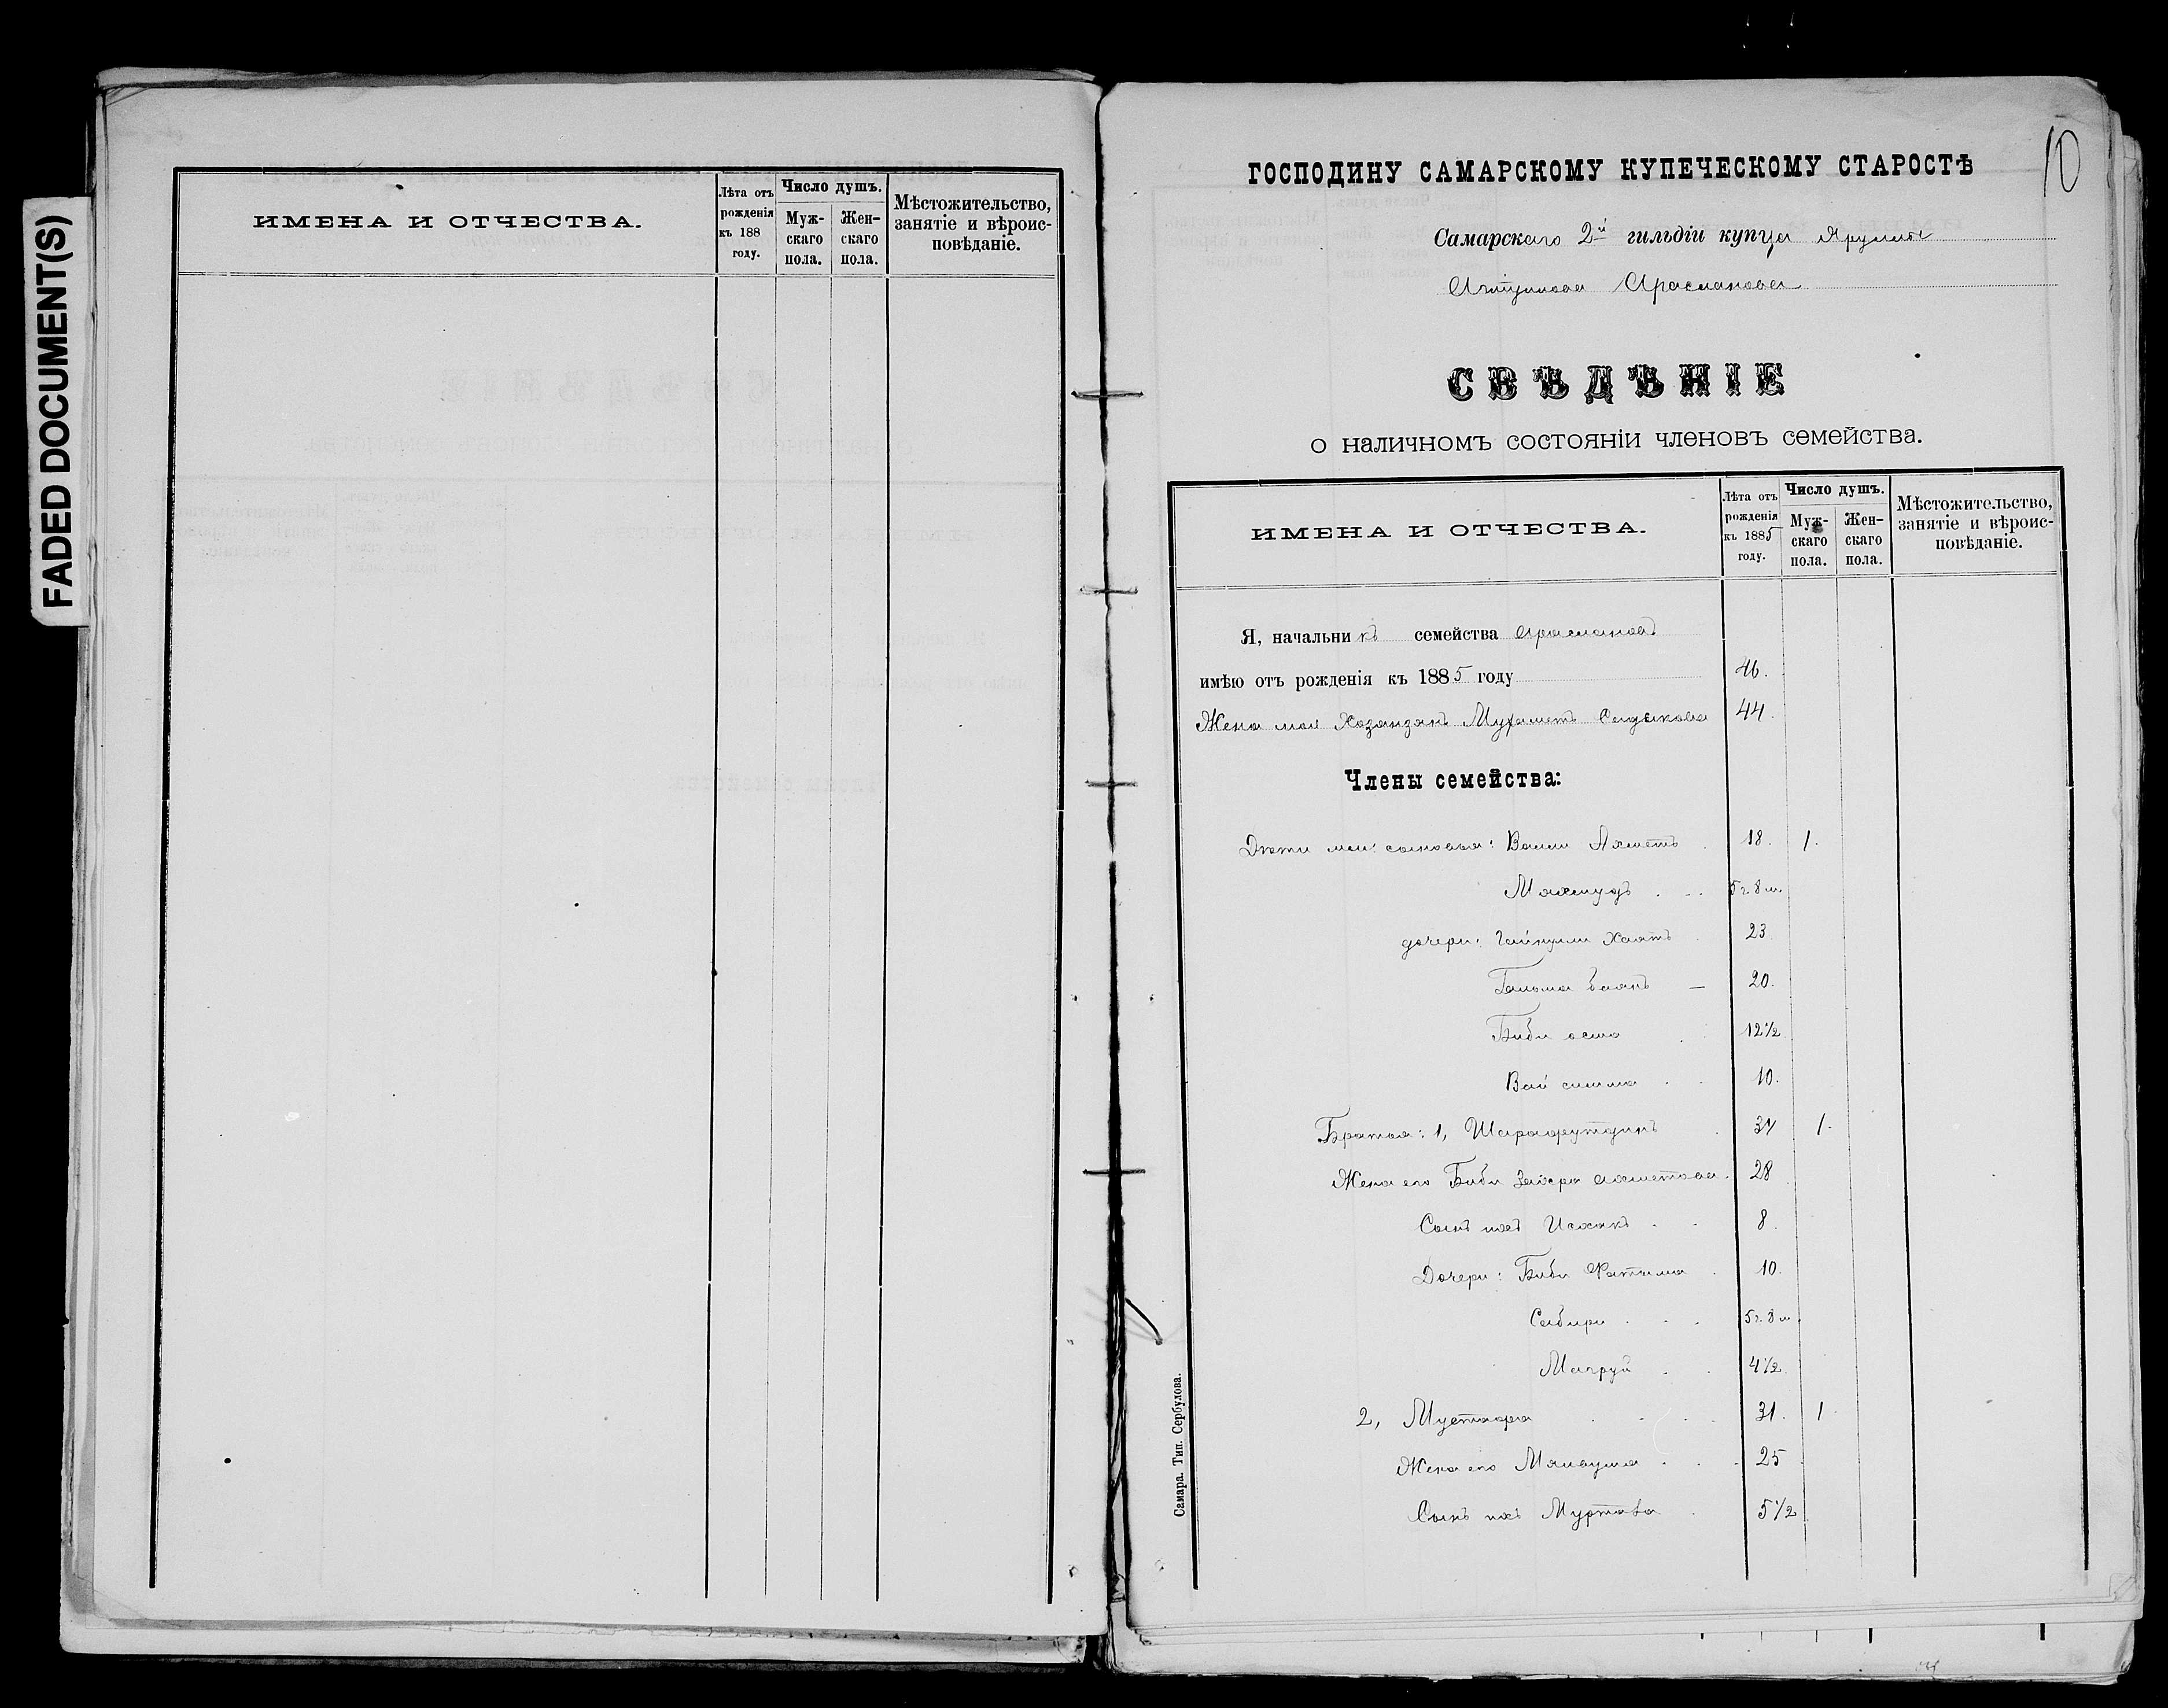 FADED DOCUMENT(S)
ИМЕНА И ОТЧЕСТВА.
Лѣта отъ рожденія къ 188 году.
Число душъ.
Муж-скаго пола.
Жен-скаго пола.
Мѣстожительство, занятіе и вѣроис-повѣданіе.
10
ГОСПОДИНУ САМАРСКОМУ КУПЕЧЕСКОМУ СТАРОСТѢ
Самарскаго 2й гильдіи купца
Арасланова
СВѢДѢНІЕ
о наличномъ состояніи членовъ семейства.
ИМЕНА И ОТЧЕСТВА.
Лѣта отъ рожденія къ 1885 году.
Число душъ.
Муж-скаго пола.
Жен-скаго пола.
Мѣстожительство, занятіе и вѣроис-повѣданіе.
Я, начальникъ семейства Араслановъ
имѣю отъ рожденія къ 1885 году 46.
Жена моя Мухаметъ 44.
Члены семейства:
Дѣти мои: сыновья: Вали Ахметъ 18. 1.
Махмудъ 5 г. 8 м.
дочери: 23.
20.
Биби 12½
10.
Братья: 1, Шарафутдинъ 1.
Жена его Биби Ахметова 28
Сынъ ихъ Исхакъ 8.
Дочери: Биби Фатима 10.
5 г. 8 м.
Магруй 4½
2, Мустафа 31. 1
Жена его 25
Сынъ ихъ Муртаза 5½
Самара. Тип. Сербулова.